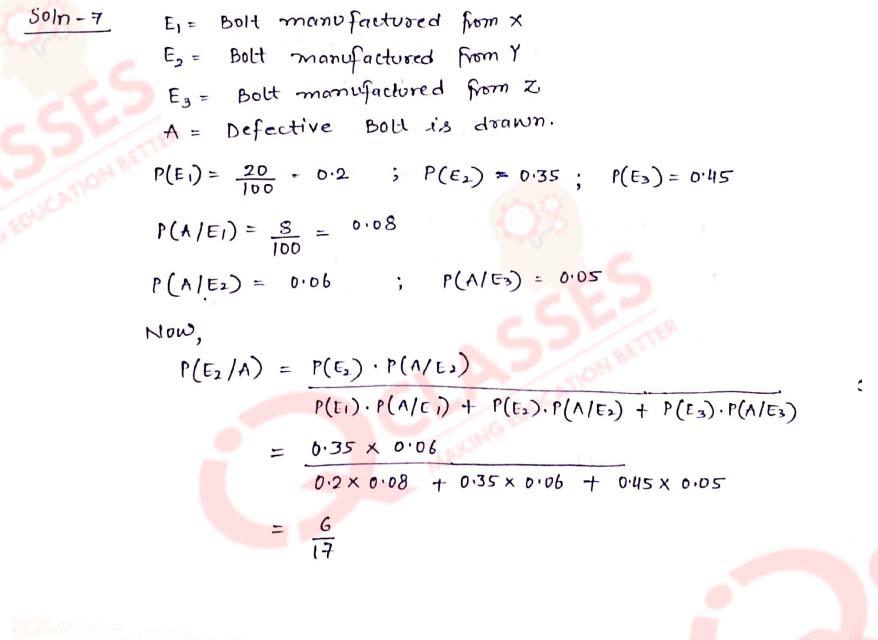 Soln - 7 E₁ = Bolt manufactured from X
E₂ = Bolt manufactured from Y
E₃ = Bolt manufactured from Z
A = Defective Bolt is drawn.
P(E₁) = 20/100 = 0.2 ; P(E₂) = 0.35 ; P(E₃) = 0.45
P(A/E₁) = 8/100 = 0.08
P(A/E₂) = 0.06 ; P(A/E₃) = 0.05
Now,
P(E₂/A) = P(E₂) · P(A/E₂)
P(E₁) · P(A/E₁) + P(E₂) · P(A/E₂) + P(E₃) · P(A/E₃)
= 0.35 × 0.06
0.2 × 0.08 + 0.35 × 0.06 + 0.45 × 0.05
= 6/17
SSES
G EDUCATION BETTER
CLASSES
MAKING EDUCATION BETTER